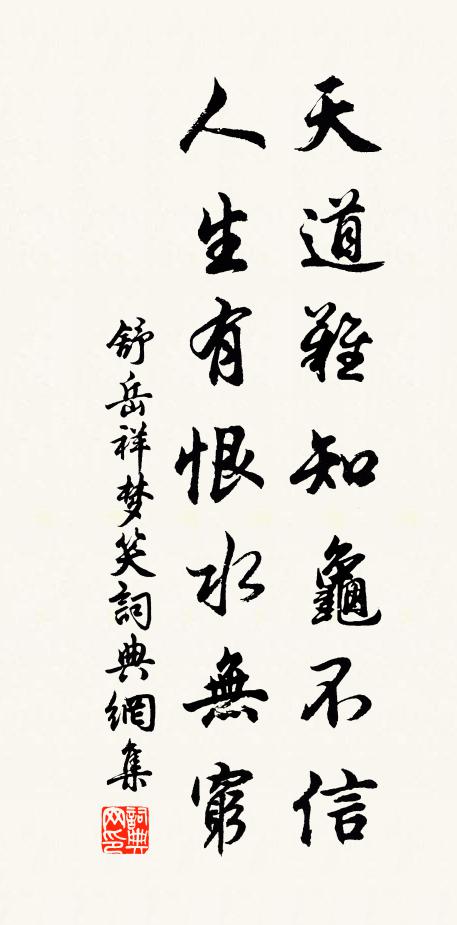 天道難知龜不信
人生有恨水無窮
舒岳祥梦笑詞典網集
詞典网印